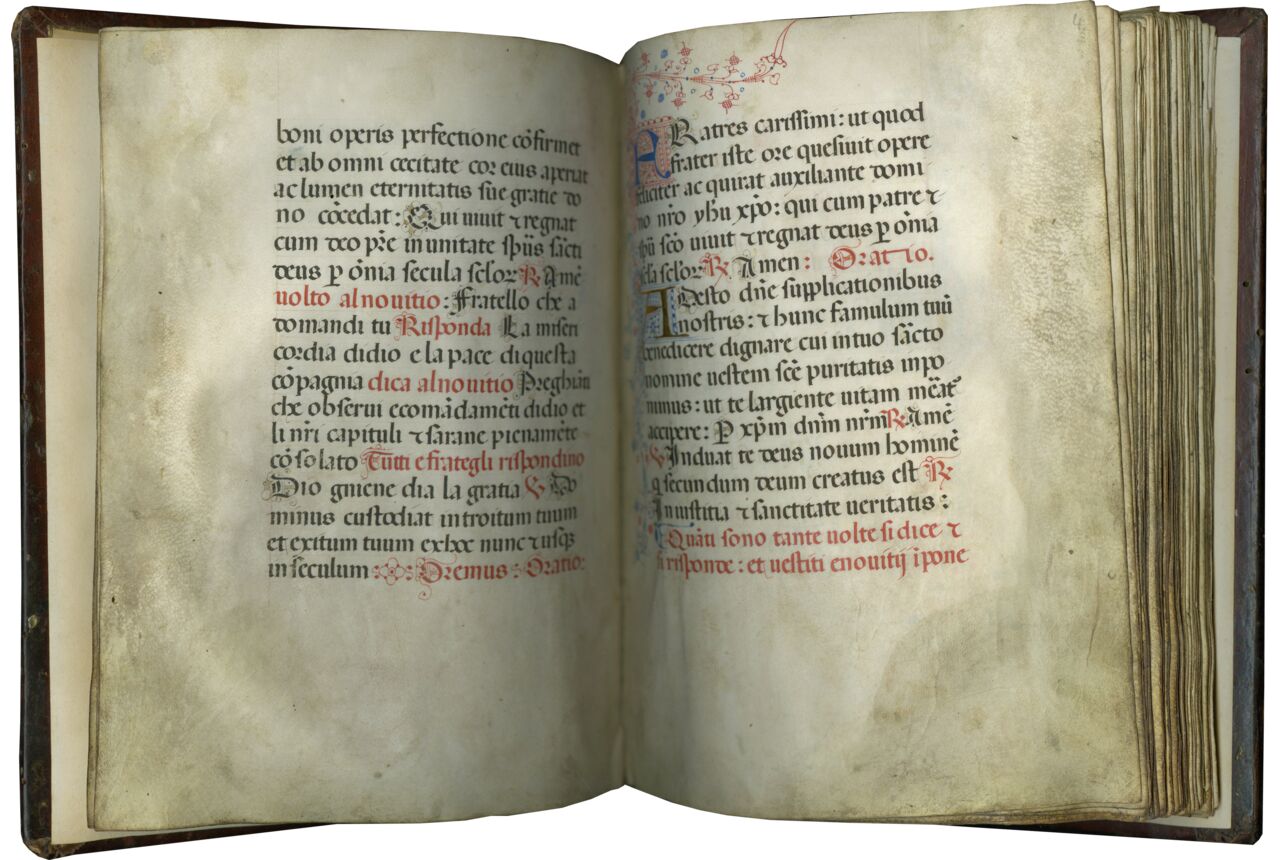 boni operis perfectione cõfirmet
et ab omni cecitate cor eius aperiat
ac lumen eternitatis sue gratie do
no cõcedat: Qui uiuit ⁊ regnat
cum deo pr̃e in unitate sp̃us sãcti
deus p õnia secula secl̃oꝝ ℟ Amẽ
uolto al nouitio: Fratello che a
domandi tu Risponda La miseri
cordia didio e la pace di questa
cõpagnia dica al nouitio Preghiãti
che obserui ecomãdamẽti didio et
li nr̃i capituli ⁊ sarane pienamẽte
cõsolato Tutti efrategli rispondino
Dio gniene dia la gratia ℣ Do
minus custodiat introitum tuum
et exitum tuum ex hoc nunc ⁊ usqꝫ
in seculum: Oremus: Oratio:
4
FRatres carissimi: ut quod
frater iste ore quesiuit opere
feliciter ac quirat auxiliante domi
no nr̃o yhu xp̃o: qui cum patre ⁊
sp̃u sc̃o uiuit ⁊ regnat deus p õnia
sc̃la scl̃oꝝ ℟ Amen: Oratio.
ADesto dñe supplicationibus
nostris: ⁊ hunc famulum tuũ
benedicere dignare cui in tuo sãcto
nomine uestem sc̃e puritatis inpo
nimus: ut te largiente uitam
accipere: P xp̃m dnm nr̃m ℟ Amẽ
℣ Induat te deus nouum hominẽ
q secundum deum creatus est ℟
In iustitia ⁊ sanctitate ueritatis:
Quãti sono tante uolte si dice ⁊
si risponde: et uestiti enouitij ĩpone